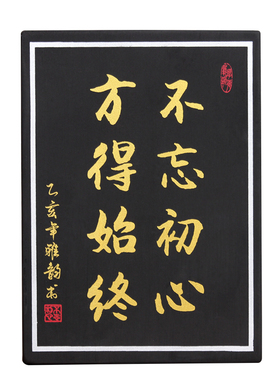 不忘初心
方得始终
乙亥年雅韵书